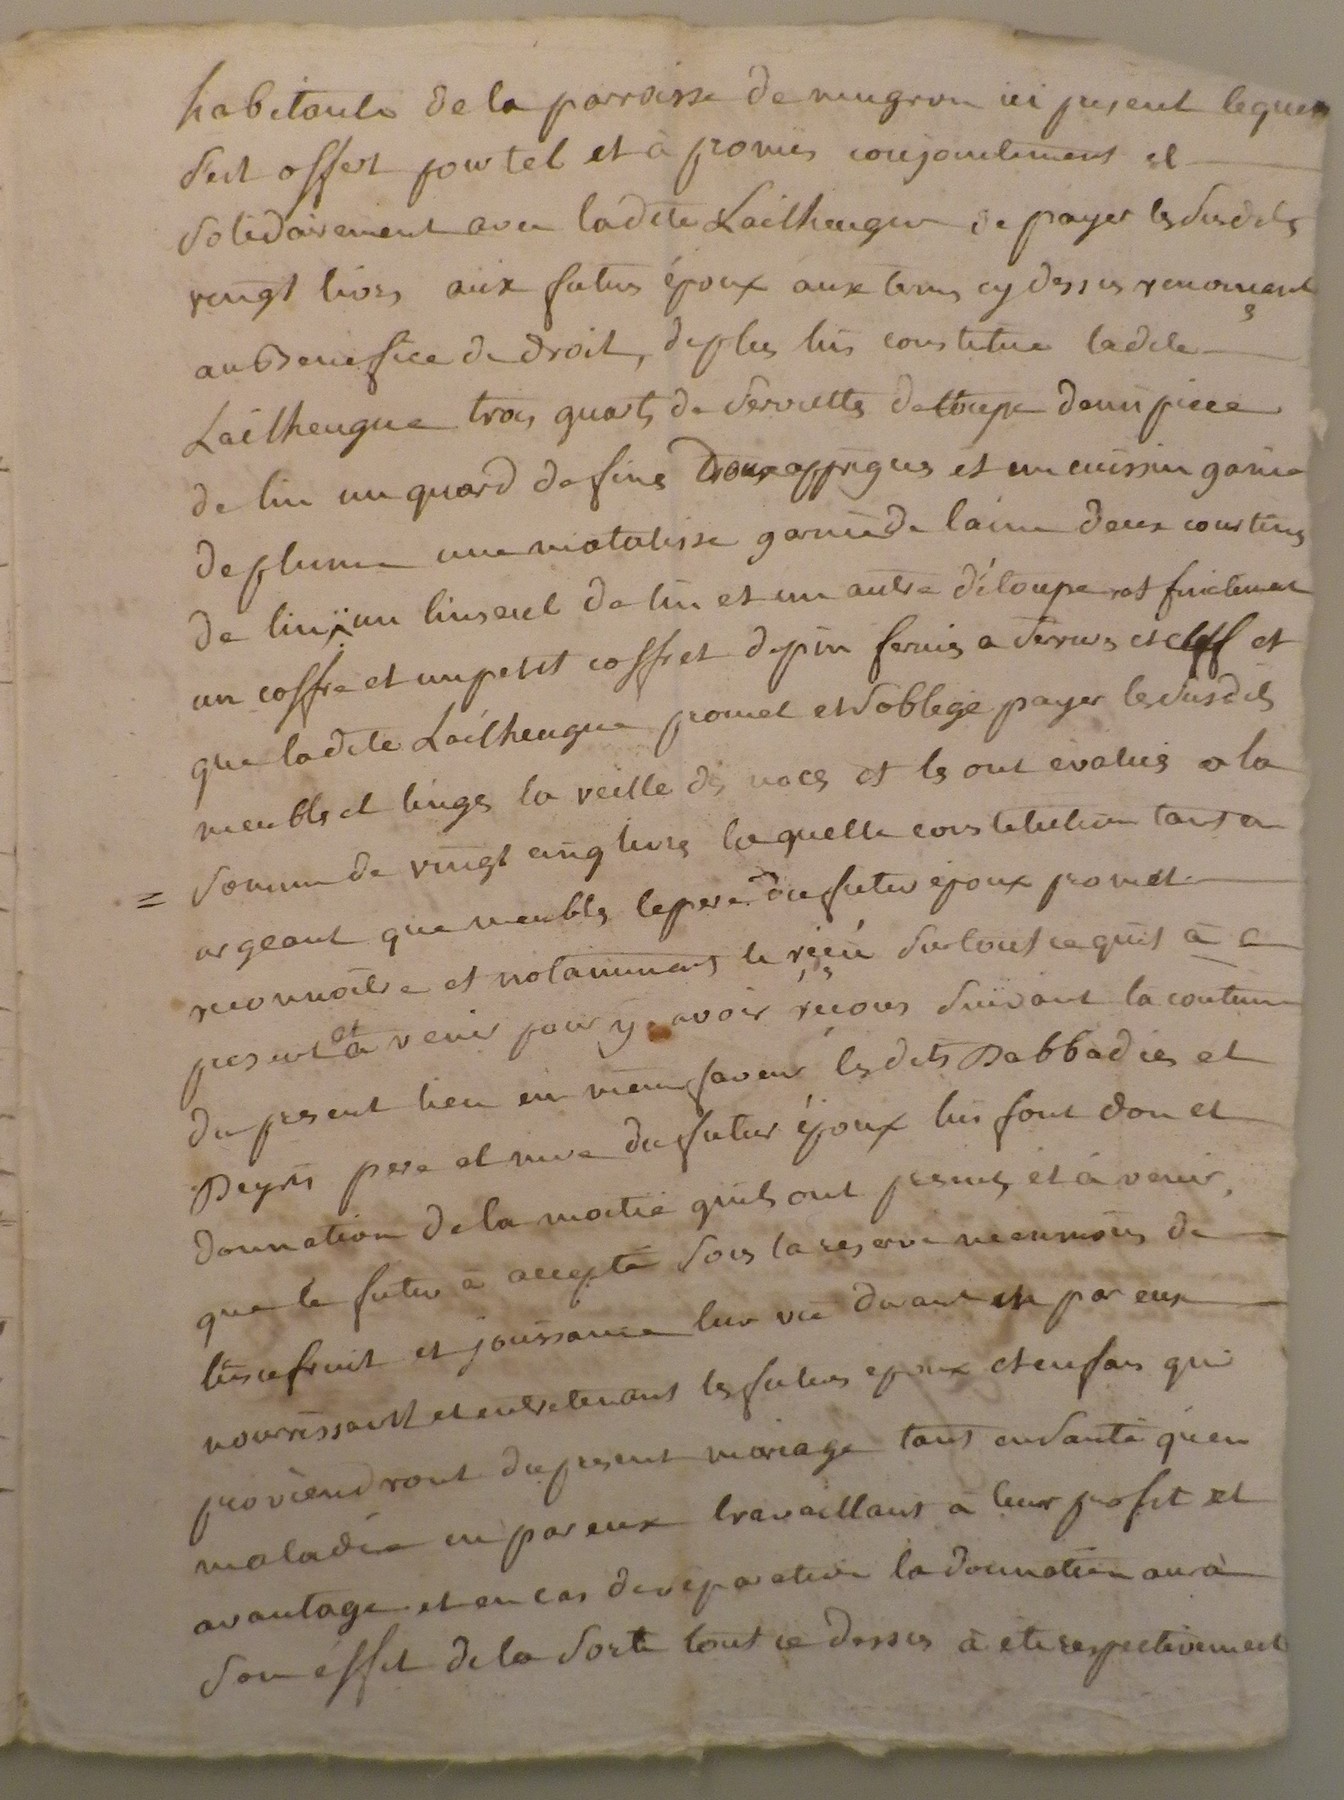 habitante de la parroisse de mugron ici present lequel
s'est offert pour tel et à promis conjointement et
solidairement avec ladite Lailheugue de payer lesdits
vingt livres aux futurs époux aux terms cy dessus renonçant
au Benefice de droit, de plus luis constitue ladite
Lailheugue trois quarts de serviettes detoupe demi piece
de lin un quard de fine Deux et un cuissin garnie
de plume une matalisse garnie de laine deux courtines
de lin un linseul de lin et un autre d'étoupe et finallement
un coffre et un petit coffret de pin fermis a serrures et cleff et
que ladite Lailheugue promet et s'oblege payer lesdits
meubles et linges la veille des noces et les ont évalués a la
somme de vingt cinq livres laquelle constitution tant en
= argeant que meubles le pere du futur époux promet
reconnoitre et notamment le réçeu sur tout ce qu'il a a
present et à venir pour y avoir récours suivant la coutume
du present lieu en meme faveur lesdits Dabbadies et
Deyris pere et mere du futur époux luis font don et
donnation de la moitié quils ont presents et à venir,
que le futur à accepté sous la reserve neanmoins de
lusufruit et jouissance leur vie durant en par eux
nourrissant et entretenant les futurs epoux et enfans qui
proviendront du present mariage tant en santé qu'en
maladie en par eux travaillant à leur profit et
avantage et en cas de séparation la donnation aura
son éffet de la sorte tout ce dessus à été respectivement